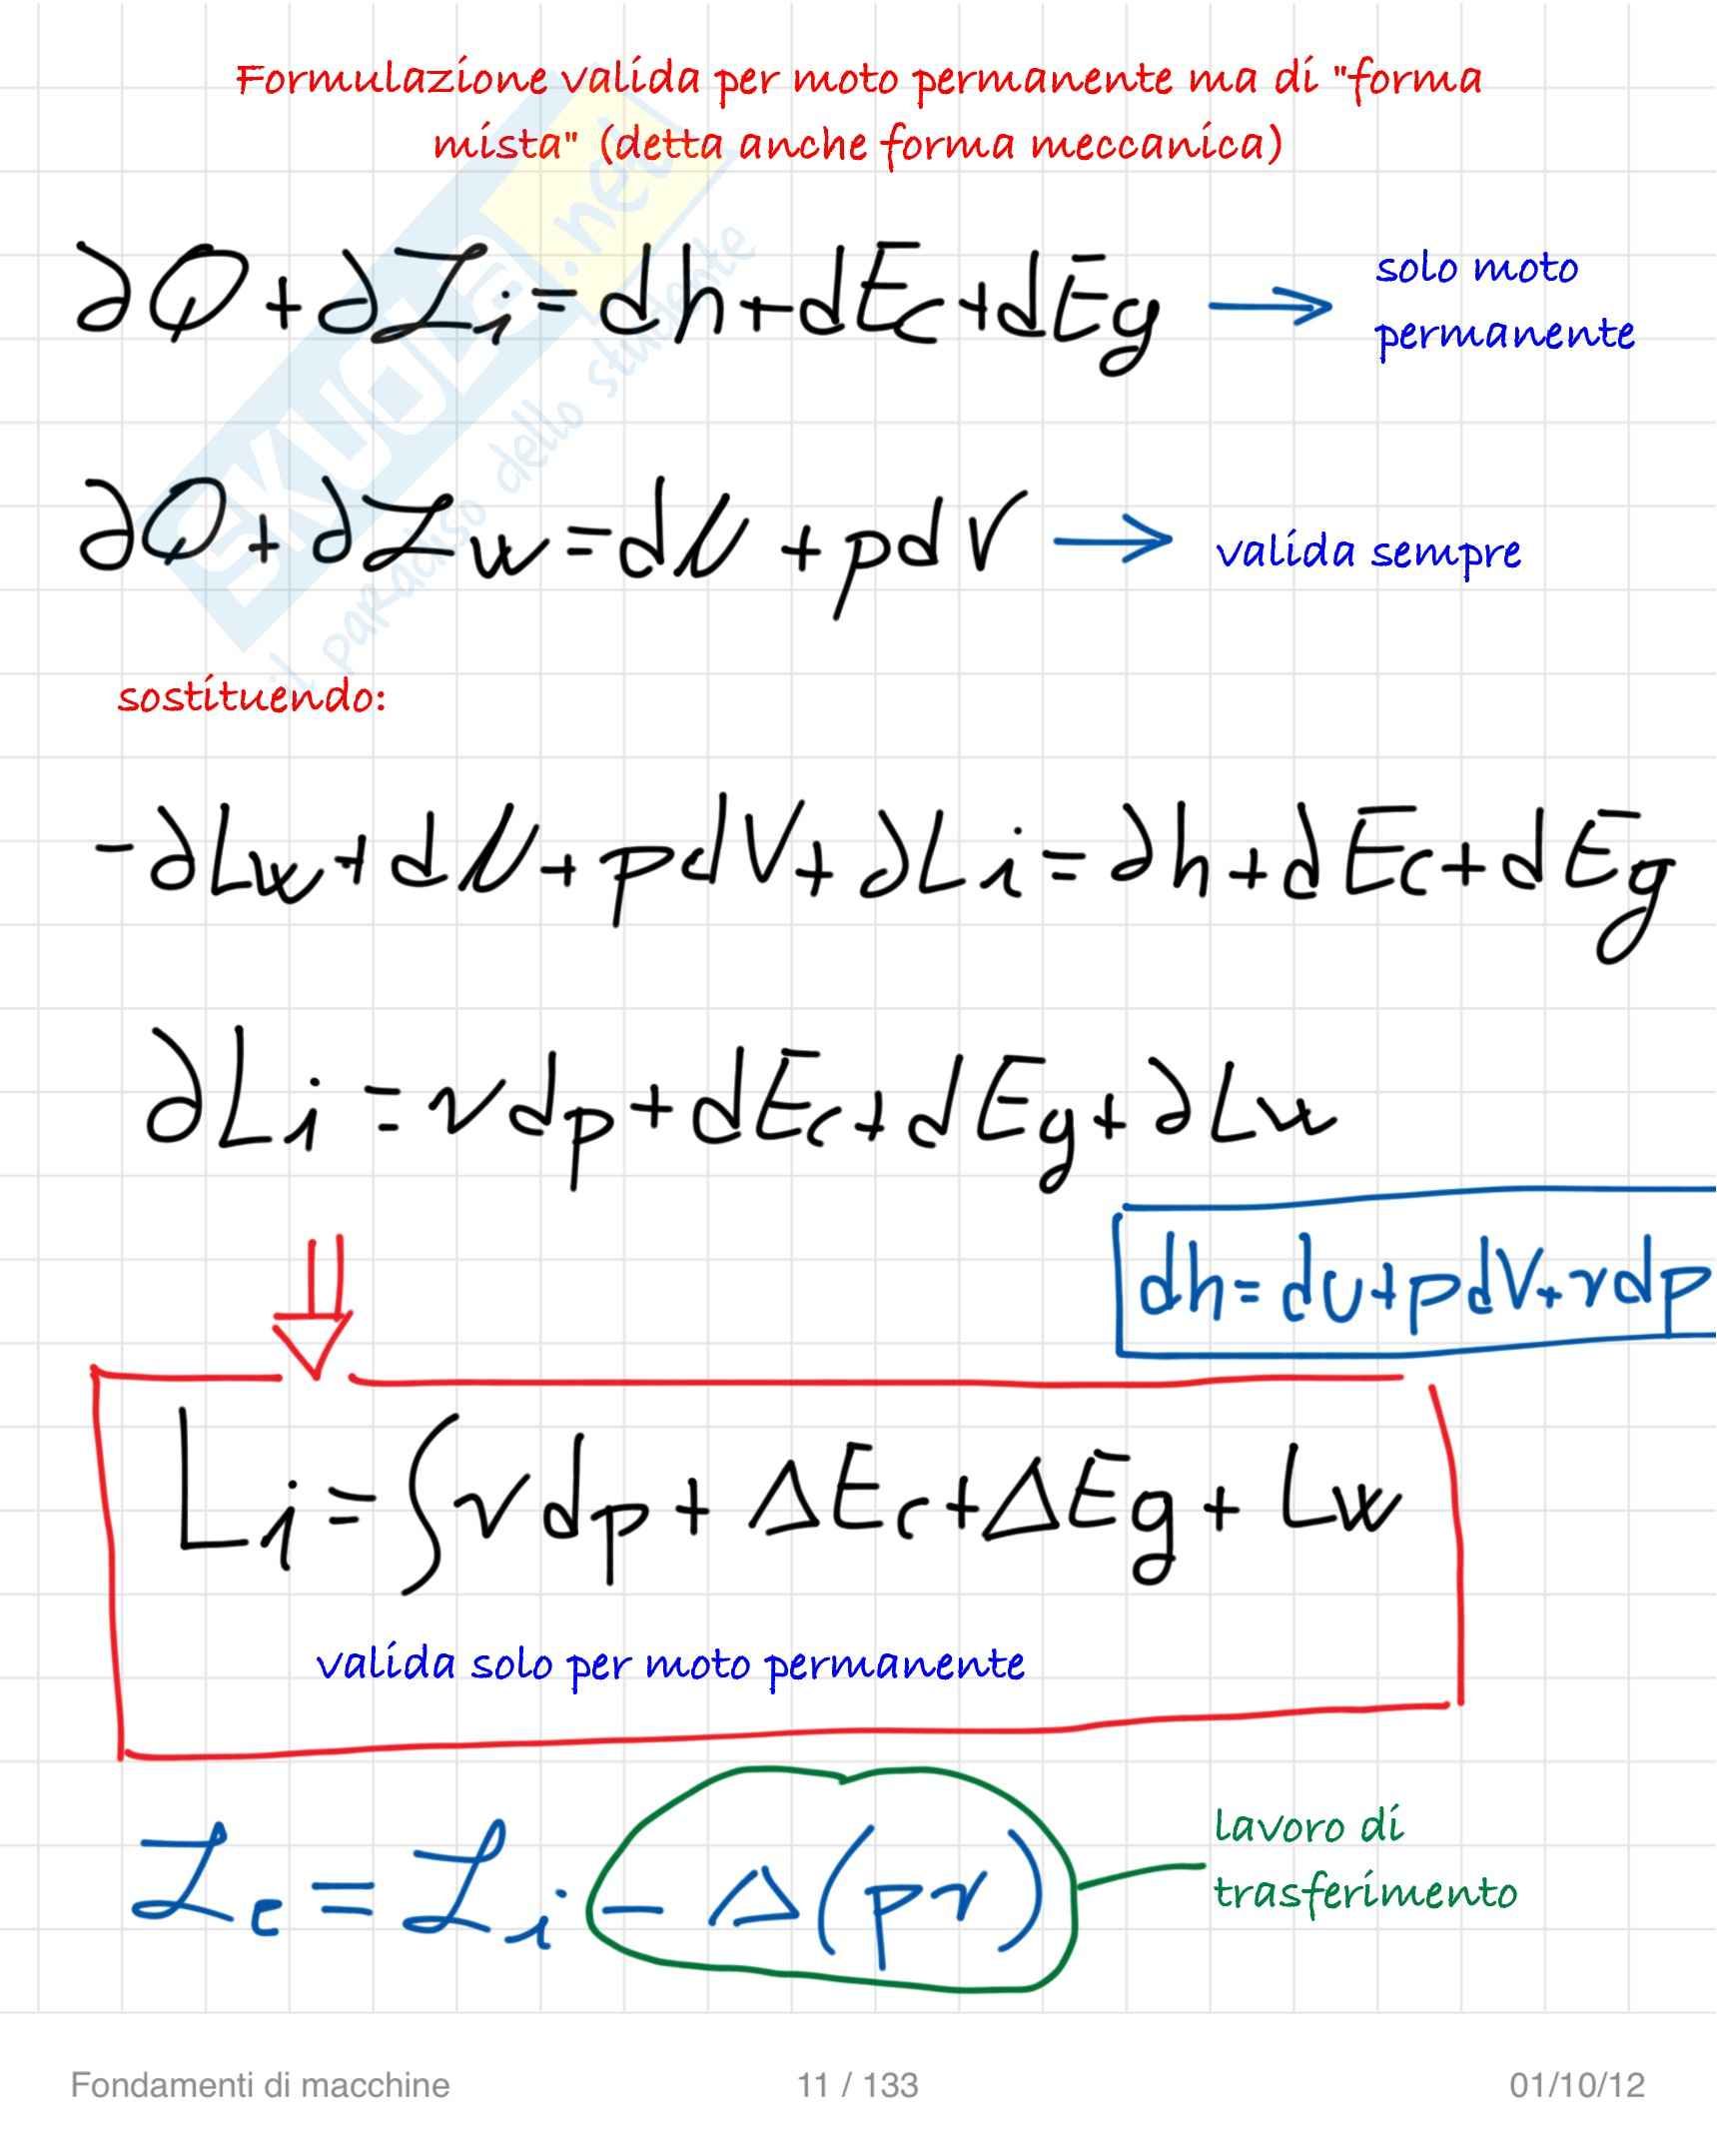 Formulazione valida per moto permanente ma di "forma
mista" (detta anche forma meccanica)
∂Q+∂Li=dh+dEc+dEg → solo moto
permanente
∂Q+∂Lw=dU+pdV → valida sempre
sostituendo:
-∂Lw+dU+pdV+∂Li=∂h+dEc+dEg
∂Li=vdp+dEc+dEg+∂Lw
dh=dU+pdV+vdp
Li=∫vdp+ΔEc+ΔEg+Lw
valida solo per moto permanente
Le=Li-Δ(pv)
lavoro di
trasferimento
SKUOLA.net
il paradiso dello studente
Fondamenti di macchine
11 / 133
01/10/12